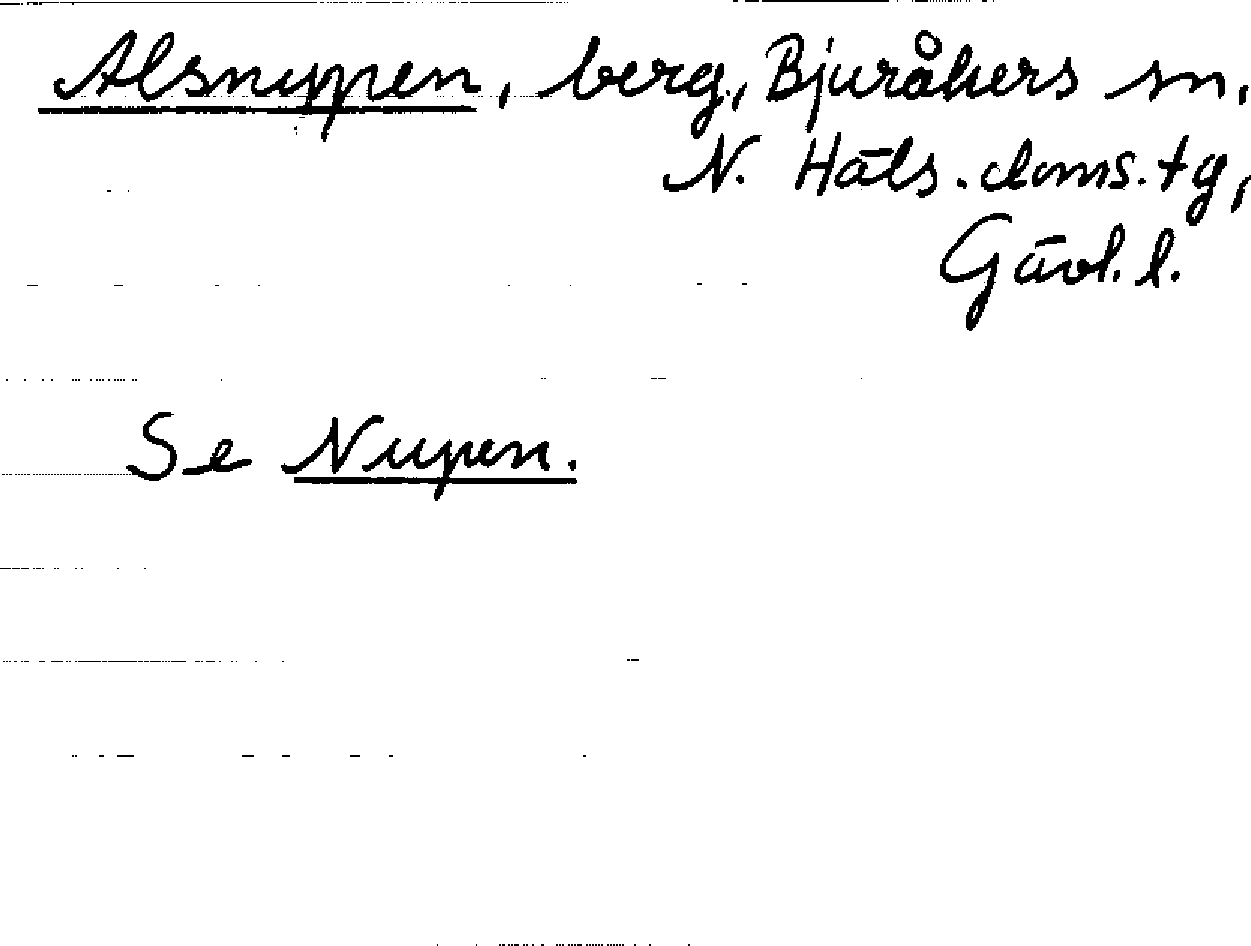 Alsnupen, berg, Bjuråkers sn,
N. Häls. doms. tg,
Gävl. l.
Se Nupen.